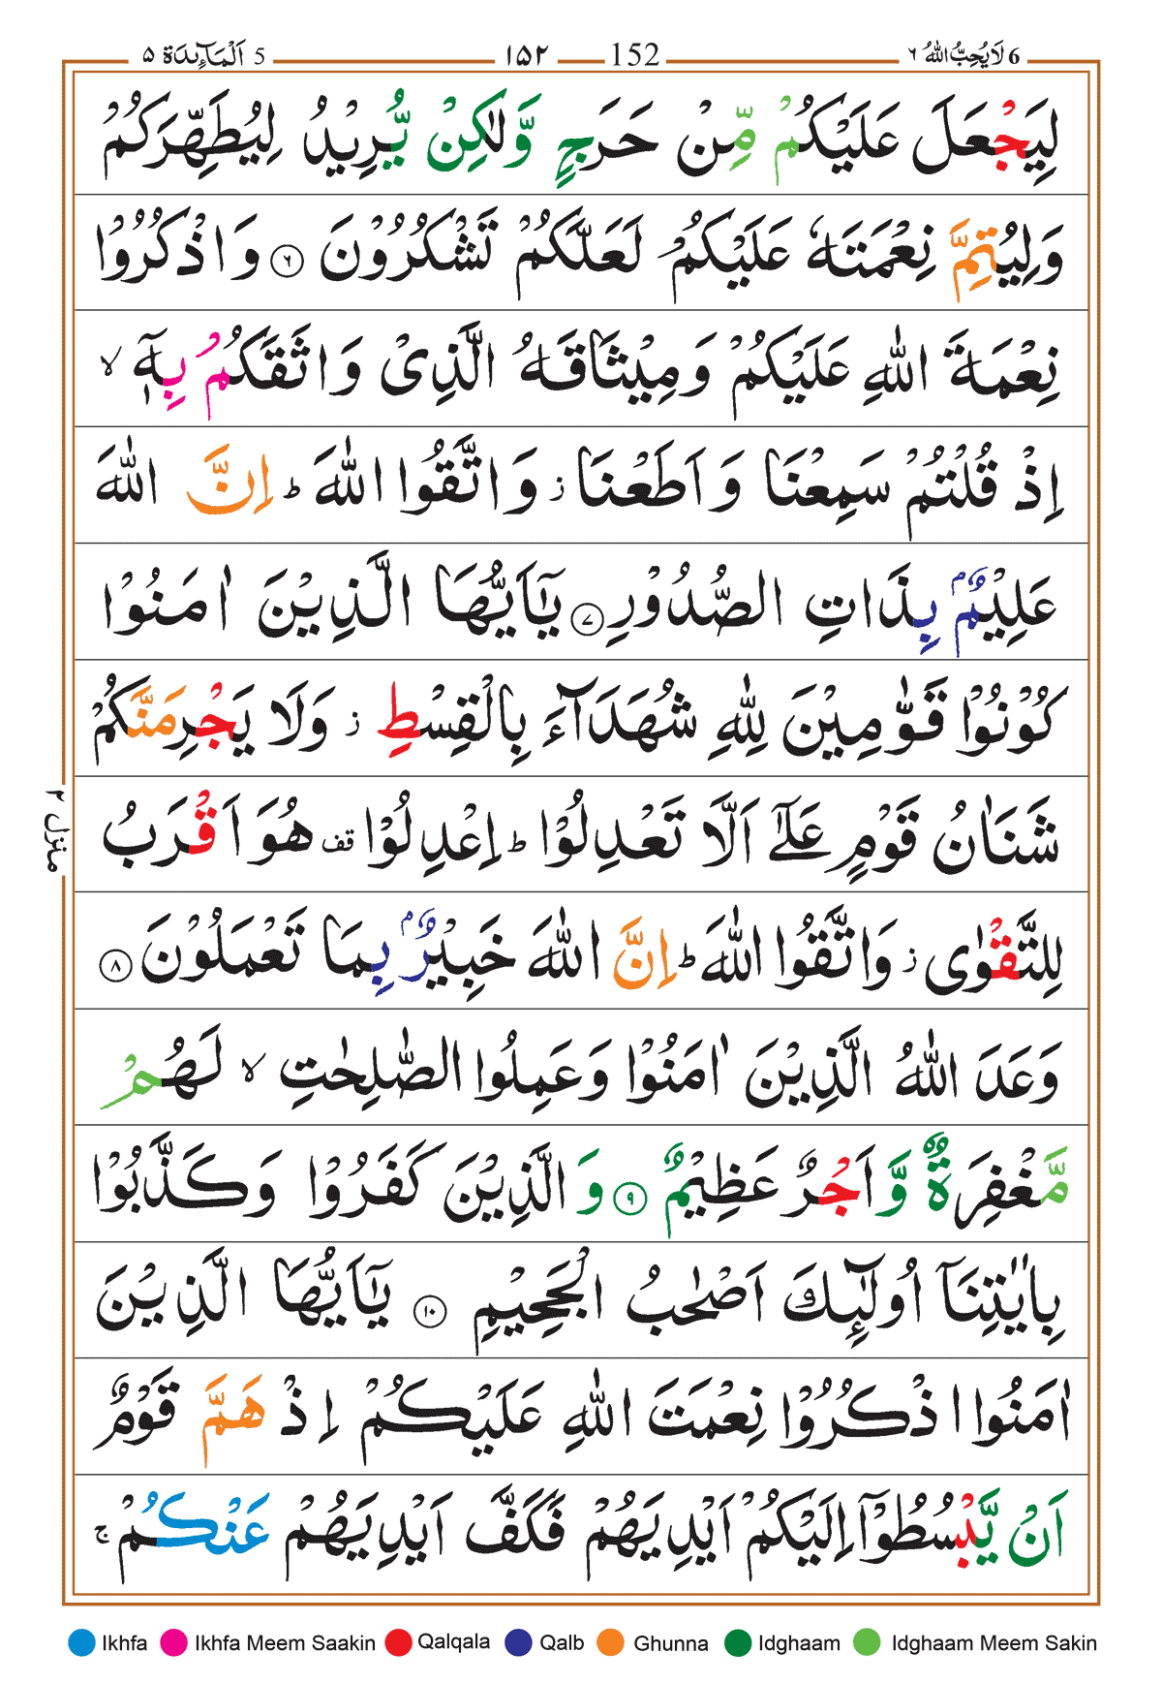 6 لَا یُحِبُّ اللّٰهُ ٦ 152 ١٥٢ 5 اَلْمَآىِٕدَة ٥
لِیَجْعَلَ عَلَیْكُمْ مِّنْ حَرَجٍ وَّلٰكِنْ یُّرِیْدُ لِیُطَهِّرَكُمْ
وَلِیُتِمَّ نِعْمَتَهٗ عَلَیْكُمْ لَعَلَّكُمْ تَشْكُرُوْنَ ٦ وَاذْكُرُوْا
نِعْمَةَ اللّٰهِ عَلَیْكُمْ وَمِیْثَاقَهُ الَّذِیْ وَاثَقَكُمْ بِهٖۤ ۙ
اِذْ قُلْتُمْ سَمِعْنَا وَاَطَعْنَا ز وَاتَّقُوا اللّٰهَ ؕ اِنَّ اللّٰهَ
عَلِیْمٌۢ بِذَاتِ الصُّدُوْرِ ٧ یٰۤاَیُّهَا الَّذِیْنَ اٰمَنُوْا
كُوْنُوْا قَوّٰمِیْنَ لِلّٰهِ شُهَدَآءَ بِالْقِسْطِ ز وَلَا یَجْرِمَنَّكُمْ
شَنَاٰنُ قَوْمٍ عَلٰۤی اَلَّا تَعْدِلُوْا ؕ اِعْدِلُوْا قف هُوَ اَقْرَبُ
لِلتَّقْوٰی ز وَاتَّقُوا اللّٰهَ ؕ اِنَّ اللّٰهَ خَبِیْرٌۢ بِمَا تَعْمَلُوْنَ ٨
وَعَدَ اللّٰهُ الَّذِیْنَ اٰمَنُوْا وَعَمِلُوا الصّٰلِحٰتِ ۙ لَهُمْ
مَّغْفِرَةٌ وَّاَجْرٌ عَظِیْمٌ ٩ وَالَّذِیْنَ كَفَرُوْا وَكَذَّبُوْا
بِاٰیٰتِنَاۤ اُولٰٓىِٕكَ اَصْحٰبُ الْجَحِیْمِ ١٠ یٰۤاَیُّهَا الَّذِیْنَ
اٰمَنُوا اذْكُرُوْا نِعْمَتَ اللّٰهِ عَلَیْكُمْ اِذْ هَمَّ قَوْمٌ
اَنْ یَّبْسُطُوْۤا اِلَیْكُمْ اَیْدِیَهُمْ فَكَفَّ اَیْدِیَهُمْ عَنْكُمْ ۚ
منزل ٢
Ikhfa Ikhfa Meem Saakin Qalqala Qalb Ghunna Idghaam Idghaam Meem Sakin